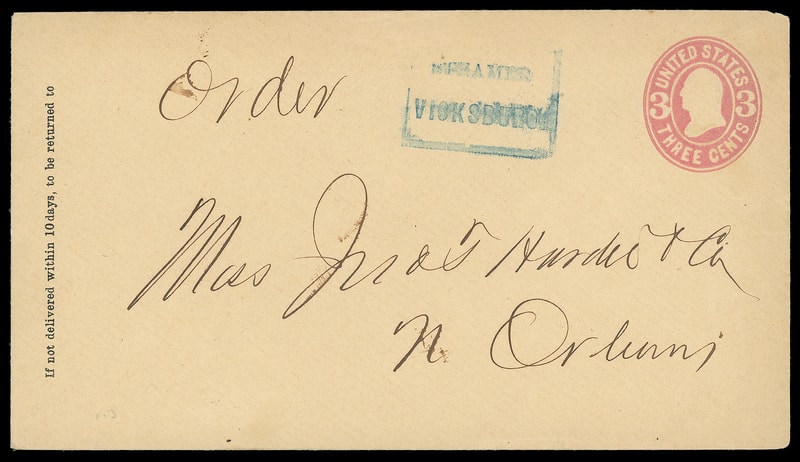 If not delivered within 10 days, to be returned to
Order
STEAMER
VICKSBURG
UNITED STATES
3 3
THREE CENTS
Mess Jno T Hardie & Co
N. Orleans